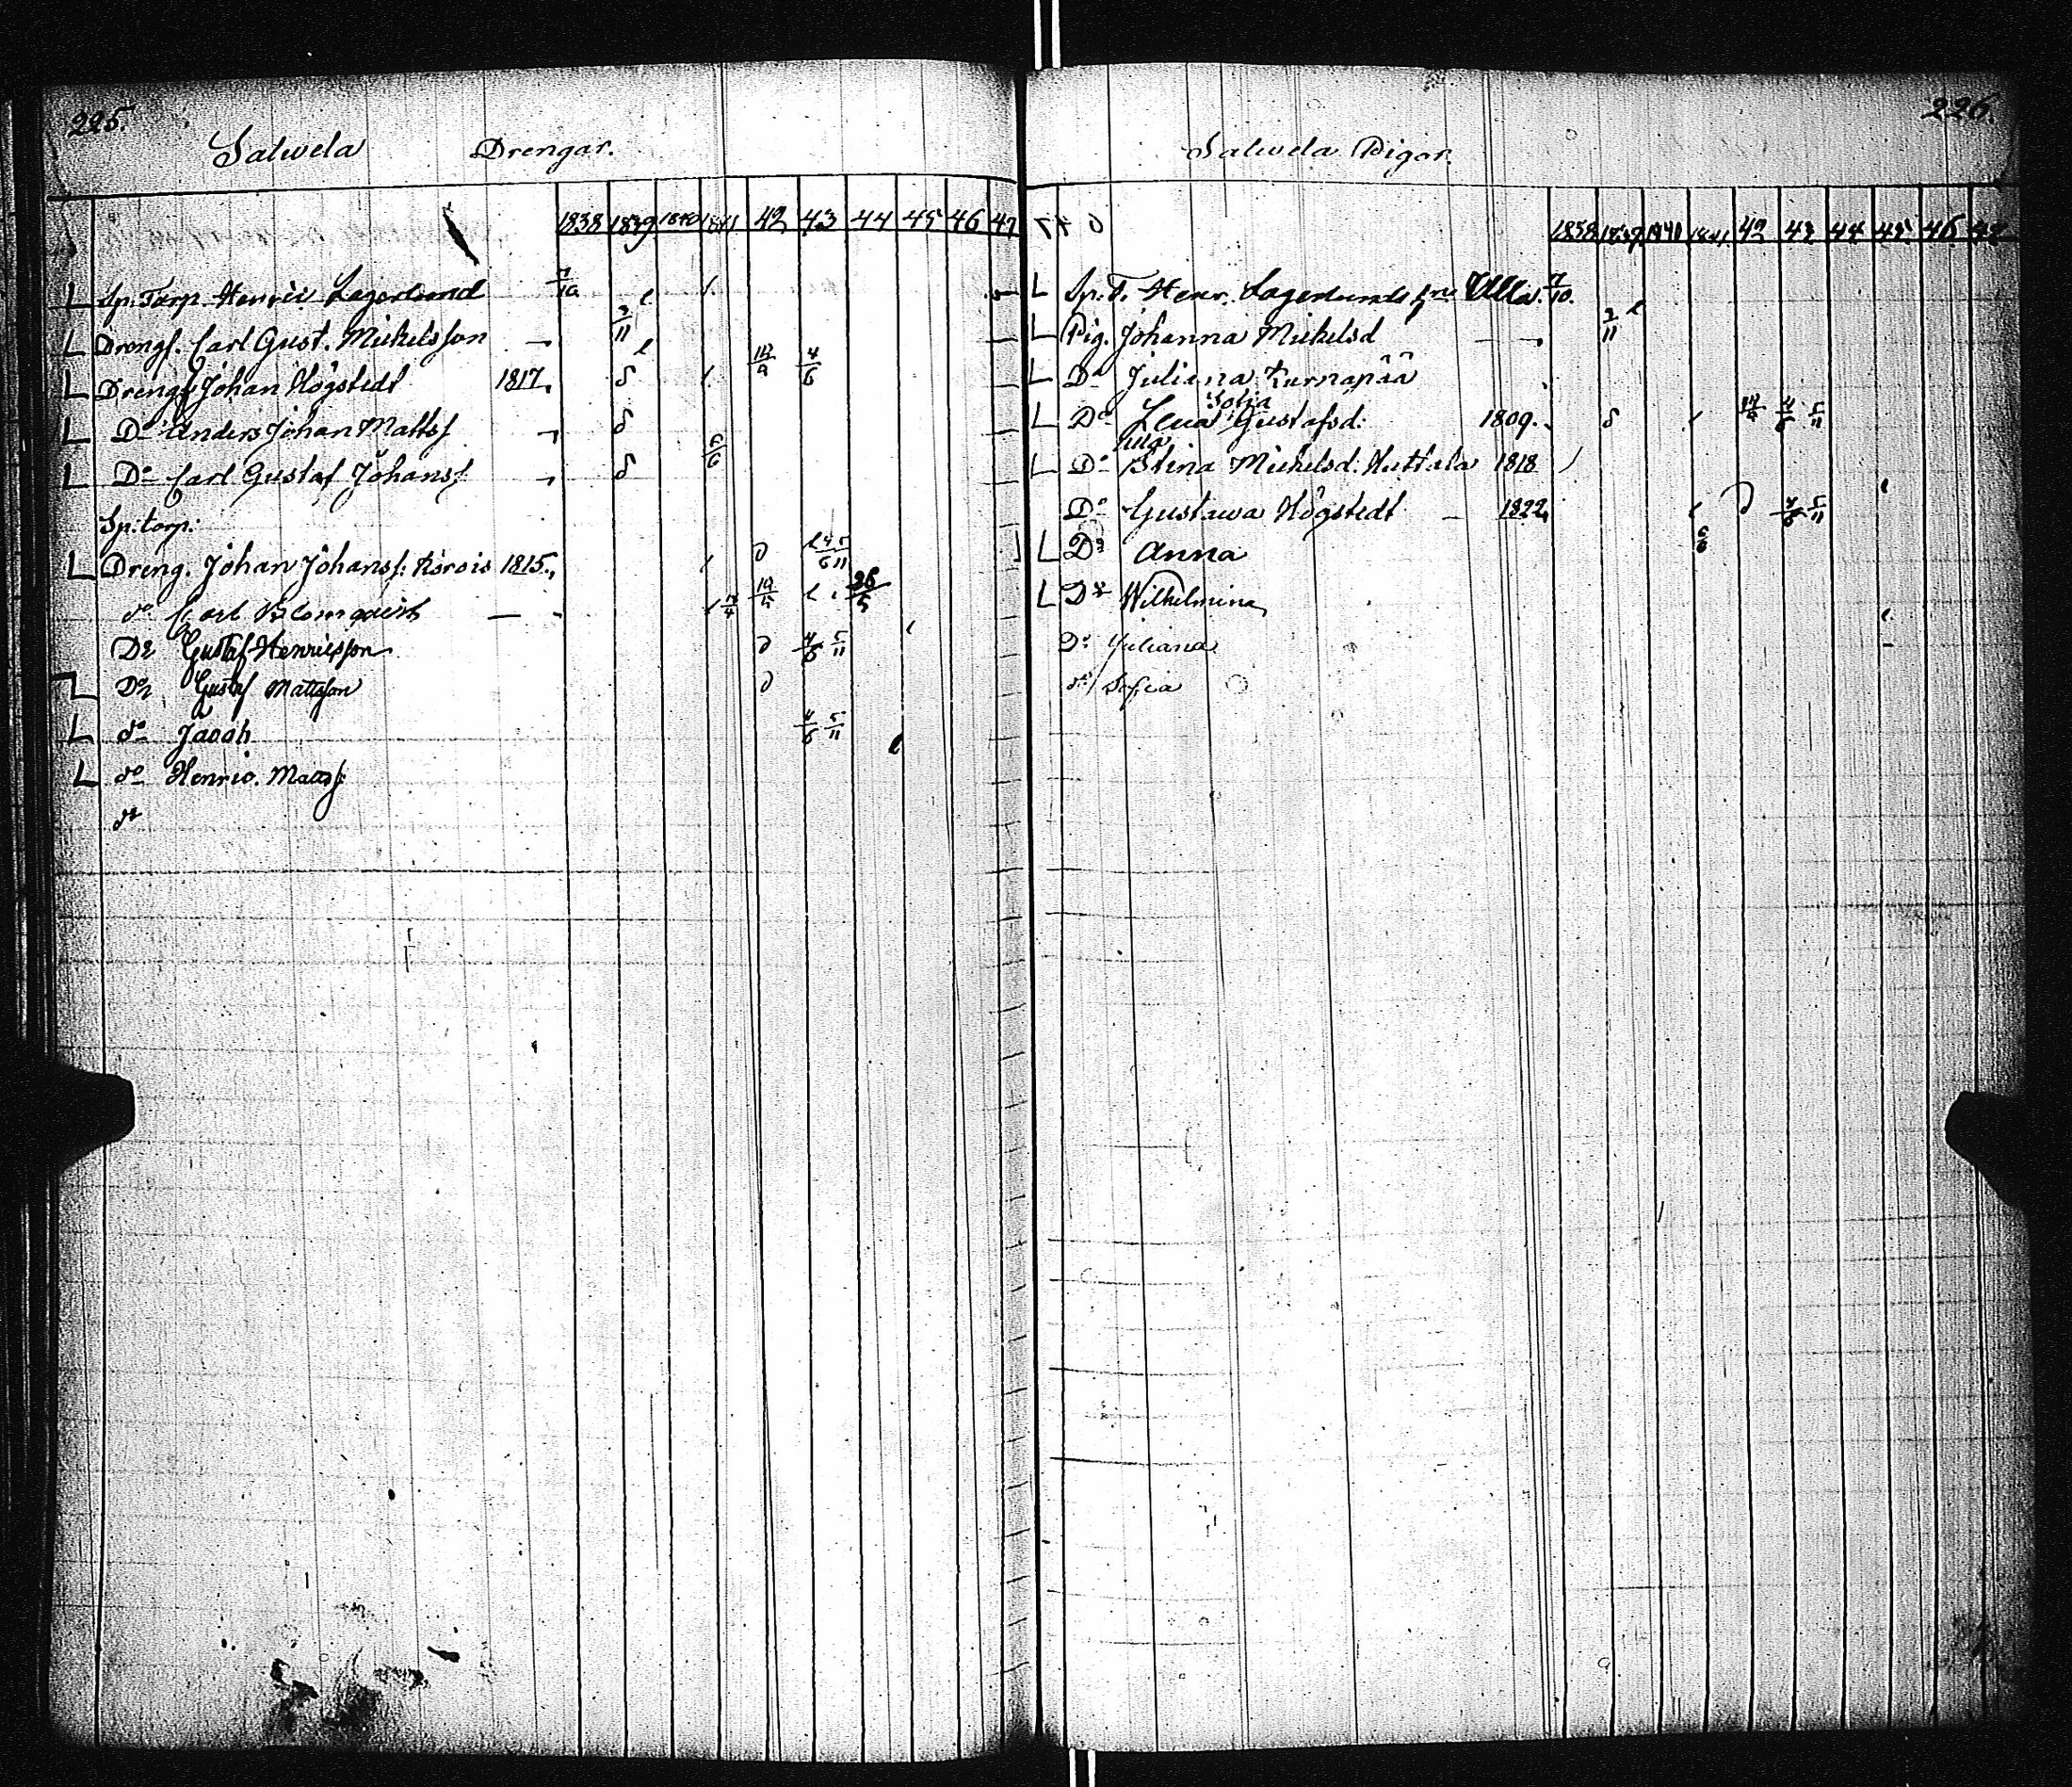 225.
Salwela Drengar.
1838 1839 1840 1841 42 43 44 45 46 47
L Sp. Torp. Henric Lagerlund 7/10
L Drengs. Carl Gust. Michelsson 2/11
L Dreng Johan Högstedt 1817. 8 12/9 4/6
L Do Anders Johan Matts 8
L Do Carl Gustaf Johanss 8 6/6
Sp: torp:
L Dreng. Johan Johanss: 1815. 4/6 5/11
do Carl Blomqvist 12/5 26/5
Do Gustaf Henricsson 4/6 5/11
L Do Gustaf Mattsson
L do Jacob 4/6 5/11
L do Henric. Matss
do
226.
Salwela Pigor.
1838 1839 1840 1841 42 43 44 45 46 47
L Sp. T. Henr. Lagerlunds Ulla. 7/10.
L Pig. Johanna Michelsd 2/11
L Do Juliana Kurnapää
Sofia
L Do Lena Gustafsd: 1809. 8 4/6 5/11
Ulla
L Do Stina Michelsd: Huttala 1818
Do Gustawa Högstedt 1822. 4/6 5/11
L Do Anna 6/6
L Do Wilhelmina
Do Juliana
do Sofia